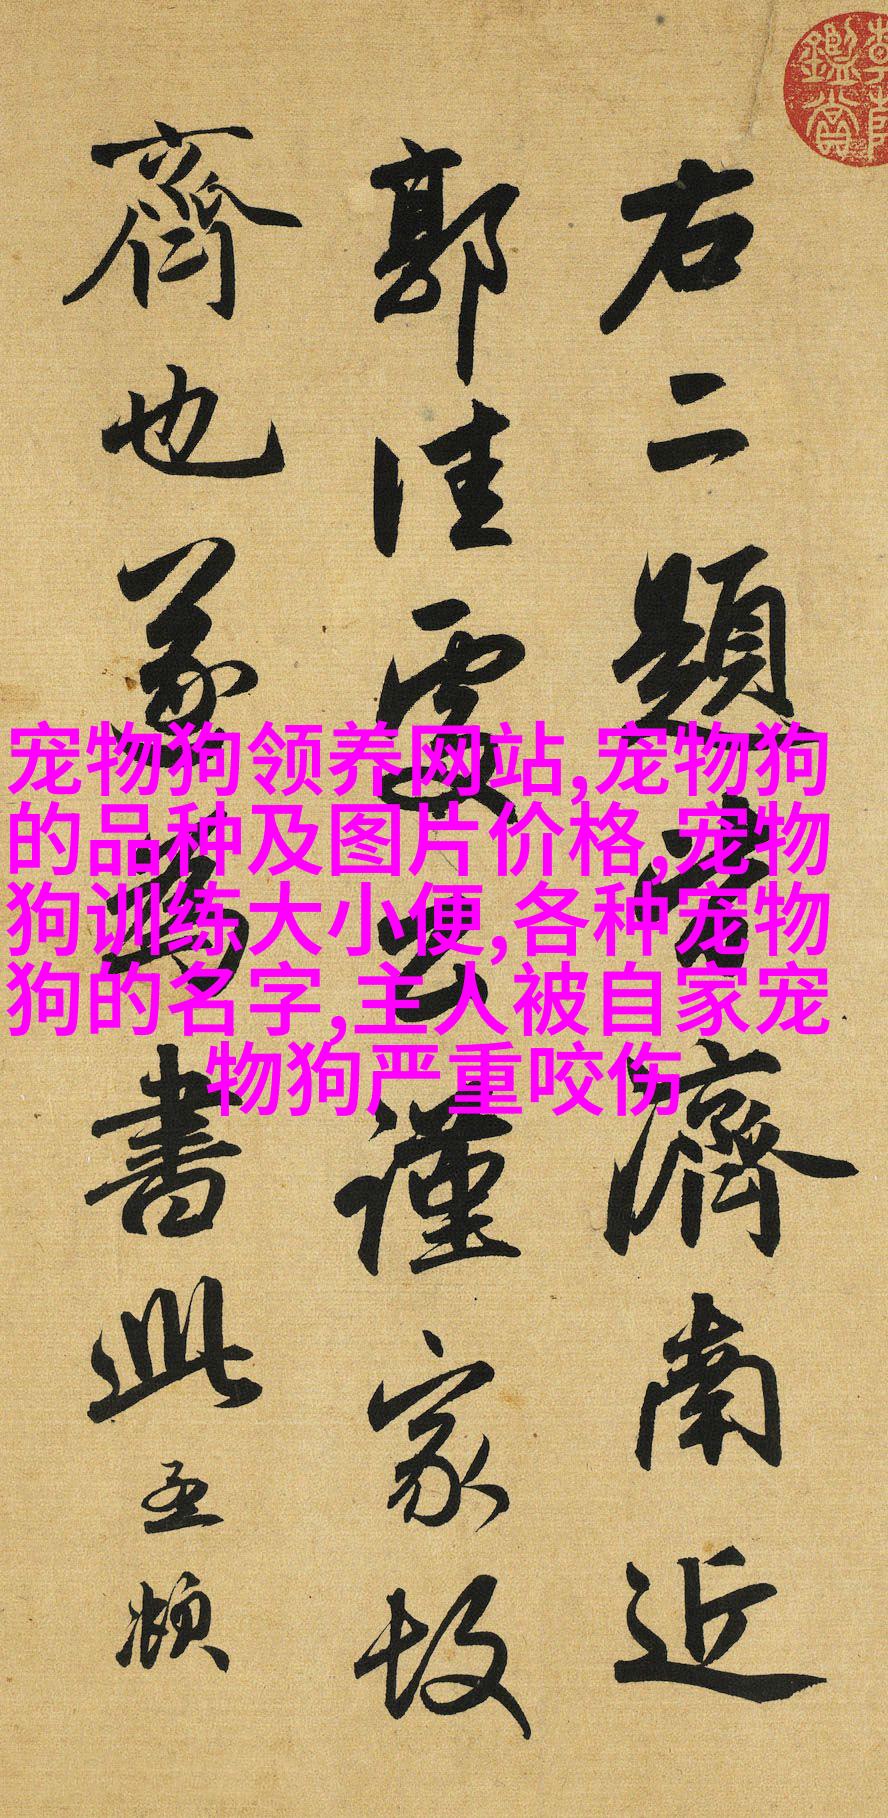 右二題皆濟南近
郭佳處公謹家故
齊也遂為書此孟頫
宠物狗领养网站,宠物狗
的品种及图片价格,宠物
狗训练大小便,各种宠物
狗的名字,主人被自家宠
物狗严重咬伤
鑑賞